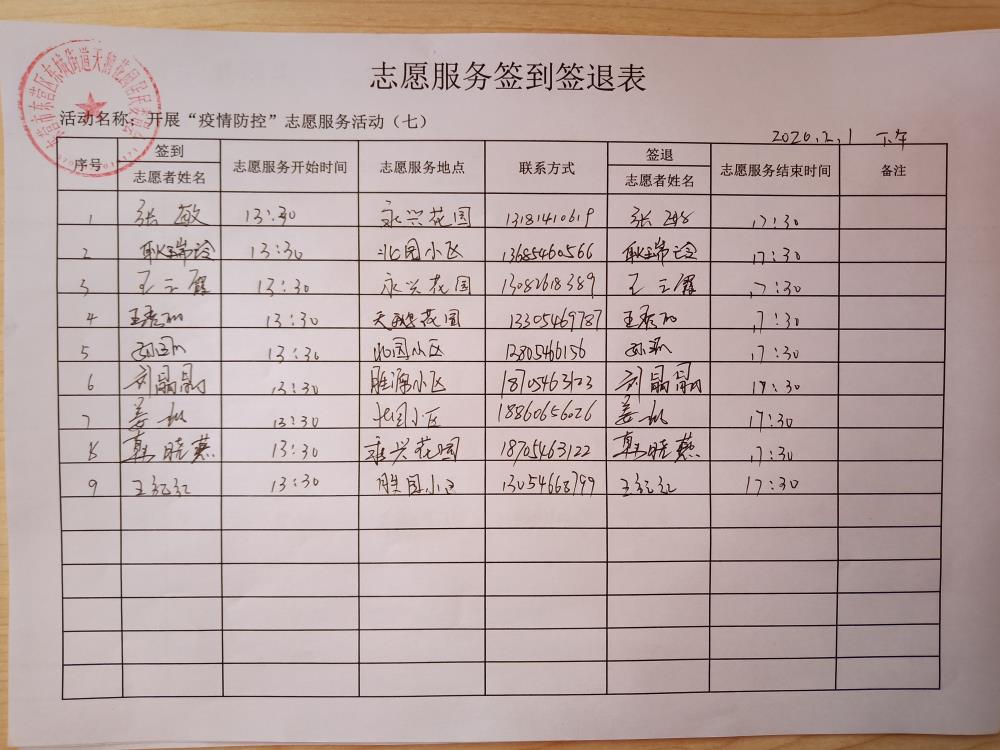 志愿服务签到签退表
活动名称：开展“疫情防控”志愿服务活动（七）
2020.2.1 下午
序号 签到 志愿者姓名 志愿服务开始时间 志愿服务地点 联系方式 签退 志愿者姓名 志愿服务结束时间 备注
1 张敏 13:30 永兴花园 13181410619 张敏 17:30
2 耿瑞玲 13:30 北园小区 13685460566 耿瑞玲 17:30
3 王三霞 13:30 永兴花园 13082618389 王三霞 17:30
4 13:30 天鹅花园 13305469787 17:30
5 13:30 北园小区 12805466156 17:30
6 刘晶晶 13:30 胜源小区 18705463123 刘晶晶 17:30
7 姜 13:30 北园小区 18860656026 姜 17:30
8 韩晓燕 13:30 永兴花园 18705463122 韩晓燕 17:30
9 王红红 13:30 胜园小区 13054668799 王红红 17:30